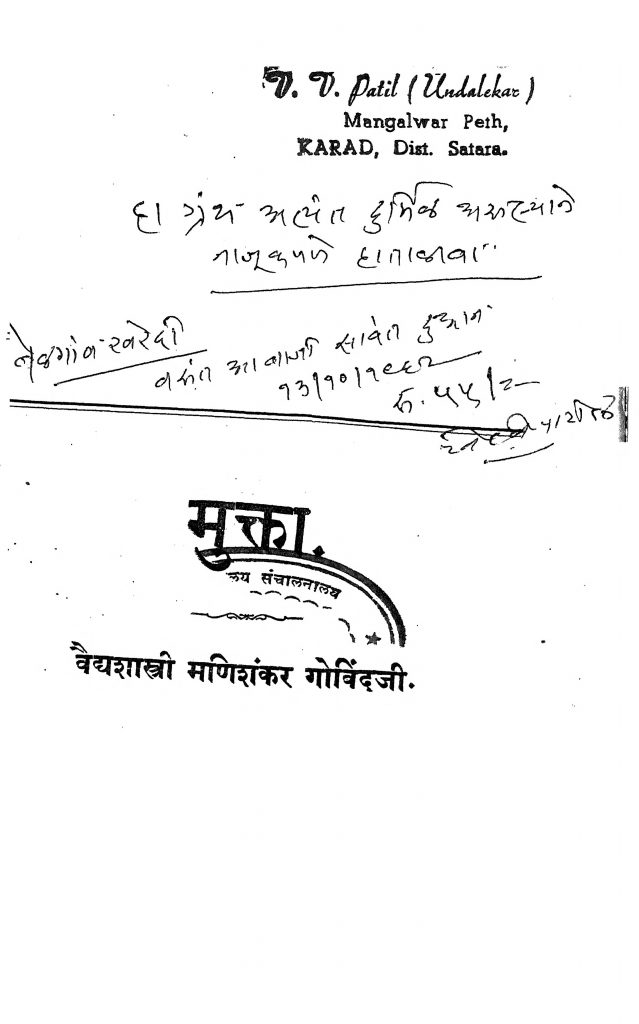 V. V. Patil (Undalekar)
Mangalwar Peth,
KARAD, Dist. Satara.
हा ग्रंथ अत्यंत दुर्मिळ असल्याने
नाजूकपणे हाताळावा
वसंत आबाजी सावंत
१३/१०/१९६२
रु. ५५/-
मुक्ता.
लय संचालनालय
वैद्यशास्त्री मणिशंकर गोविंदजी.